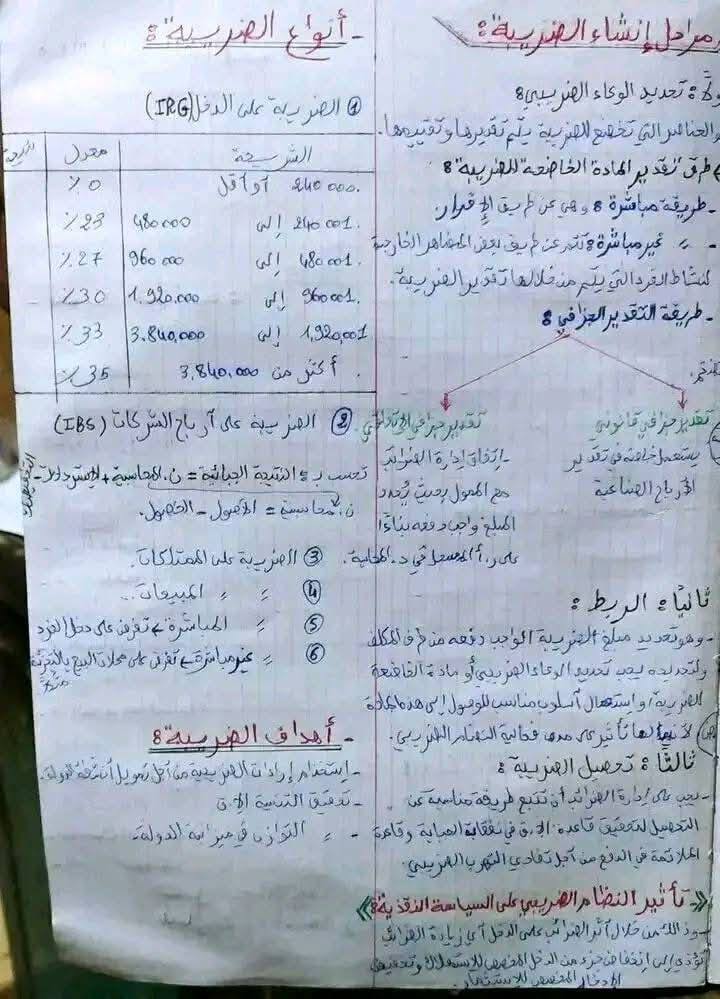 مراحل إنشاء الضريبة:
أولاً: تحديد الوعاء الضريبي:
العناصر التي تخضع للضريبة يتم تقديرها وتقييمها.
طرق تقدير المادة الخاضعة للضريبة:
- طريقة مباشرة: وهي عن طريق الإقرار
- " غير مباشرة: تتم عن طريق بعض المظاهر الخارجية
لنشاط الفرد التي يتم من خلالها تقدير الضريبة.
- طريقة التقدير الجزافي:
تقدير جزافي قانوني
يستعمل خاصة في تقدير
الأرباح الصناعية
تقدير جزافي اتفاقي
- إتفاق إدارة الضرائب
مع الممول بحيث يُحدد
المبلغ واجب دفعه بناءًا
على ر.أ المسجل في د. المحاسبة.
ثانيًا: الربط:
- وهو تحديد مبلغ الضريبة الواجب دفعه من طرف المكلف
ولتحديده يجب تحديد الوعاء الضريبي أو مادة الخاضعة
للضريبة، واستعمال أسلوب مناسب للوصول إلى هذه المادة
لأن لها تأثير على مدى فعالية النظام الضريبي.
ثالثًا: تحصيل الضريبة:
- يجب على إدارة الضرائب أن تتبع طريقة مناسبة عن
التحصيل لتحقيق قاعدة الإق في نفقات الجباية وقاعدة
الملائمة في الدفع من أجل تفادي التهرب الضريبي.
« - تأثير النظام الضريبي على السياسة النقدية: »
- وذلك من خلال أثر الضرائب على الدخل أي زيادة الضرائب
تؤدي إلى انخفاض جزء من الدخل المخصص للاستهلاك وتخفيض
الإدخار المخصص للاستثمار.
- أنواع الضريبة:
① الضريبة على الدخل (IRG)
الشريحة معدل
240.000 أو أقل 0%
240.001 إلى 480.000 23%
480.001 إلى 960.000 27%
960.001 إلى 1.920.000 30%
1,920,001 إلى 3.840,000 33%
أكثر من 3,840,000 35%
② الضريبة على أرباح الشركات (IBS)
تحسب بـ: النتيجة الجبائية = ن. المحاسبية + الاستردادات - التخفيضات
ن. محاسبية = الأصول - الخصوم.
③ الضريبة على الممتلكات.
④ " " المبيعات..
⑤ " المباشرة ← تفرض على دخل الفرد
⑥ " غير مباشرة ← تفرض على محلات البيع بالتجزئة
مثلا
- أهداف الضريبة:
- إستخدام إيرادات الضريبية من أجل تمويل أنشطة الدولة.
- تحقيق التنمية الإق
- " التوازن في ميزانية الدولة.